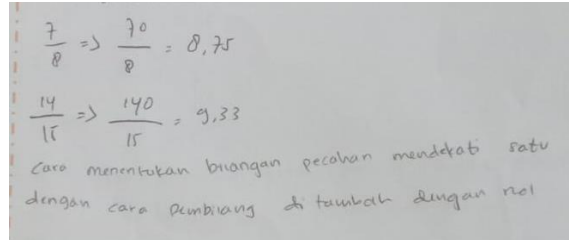 7/8 => 70/8 = 8,75
14/15 => 140/15 = 9,33
Cara menentukan bilangan pecahan mendekati satu
dengan cara pembilang di tambah dengan nol